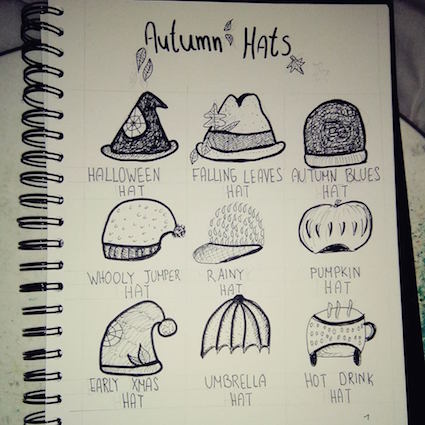 Autumn Hats
HALLOWEEN HAT
FALLING LEAVES HAT
AUTUMN BLUES HAT
WHOOLY JUMPER HAT
RAINY HAT
PUMPKIN HAT
EARLY XMAS HAT
UMBRELLA HAT
HOT DRINK HAT
1